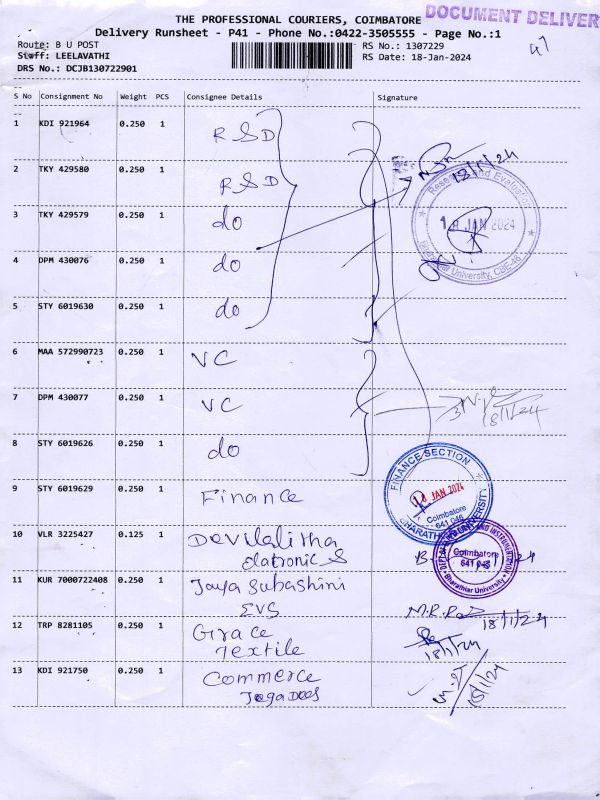 THE PROFESSIONAL COURIERS, COIMBATORE
DOCUMENT DELIVER
Delivery Runsheet - P41 - Phone No.:0422-3505555 - Page No.:1
Route: B U POST
RS No.: 1307229
47
Staff: LEELAVATHI
RS Date: 18-Jan-2024
DRS No.: DCJB130722901
S No Consignment No Weight PCS Consignee Details Signature
1 KDI 921964 0.250 1 RSD
2 TKY 429580 0.250 1 RSD
18/1/24
Research and Evaluation
18 JAN 2024
Bharathiar University, CBE-46
3 TKY 429579 0.250 1 do
4 DPM 430076 0.250 1 do
5 STY 6019630 0.250 1 do
6 MAA 572990723 0.250 1 VC
7 DPM 430077 0.250 1 VC
18/1/24
8 STY 6019626 0.250 1 do
9 STY 6019629 0.250 1 Finance
FINANCE SECTION
18 JAN 2024
Coimbatore
641 046
BHARATHIAR UNIVERSITY
10 VLR 3225427 0.125 1 Devilalitha
Elatronics
Coimbatore
641 046
Bharathiar University
11 KUR 7000722408 0.250 1 Jaya Subashini
EVS
18/1/24
12 TRP 8281105 0.250 1 Grace
Textile
18/1/24
13 KDI 921750 0.250 1 Commerce
Jegadees
18/1/24